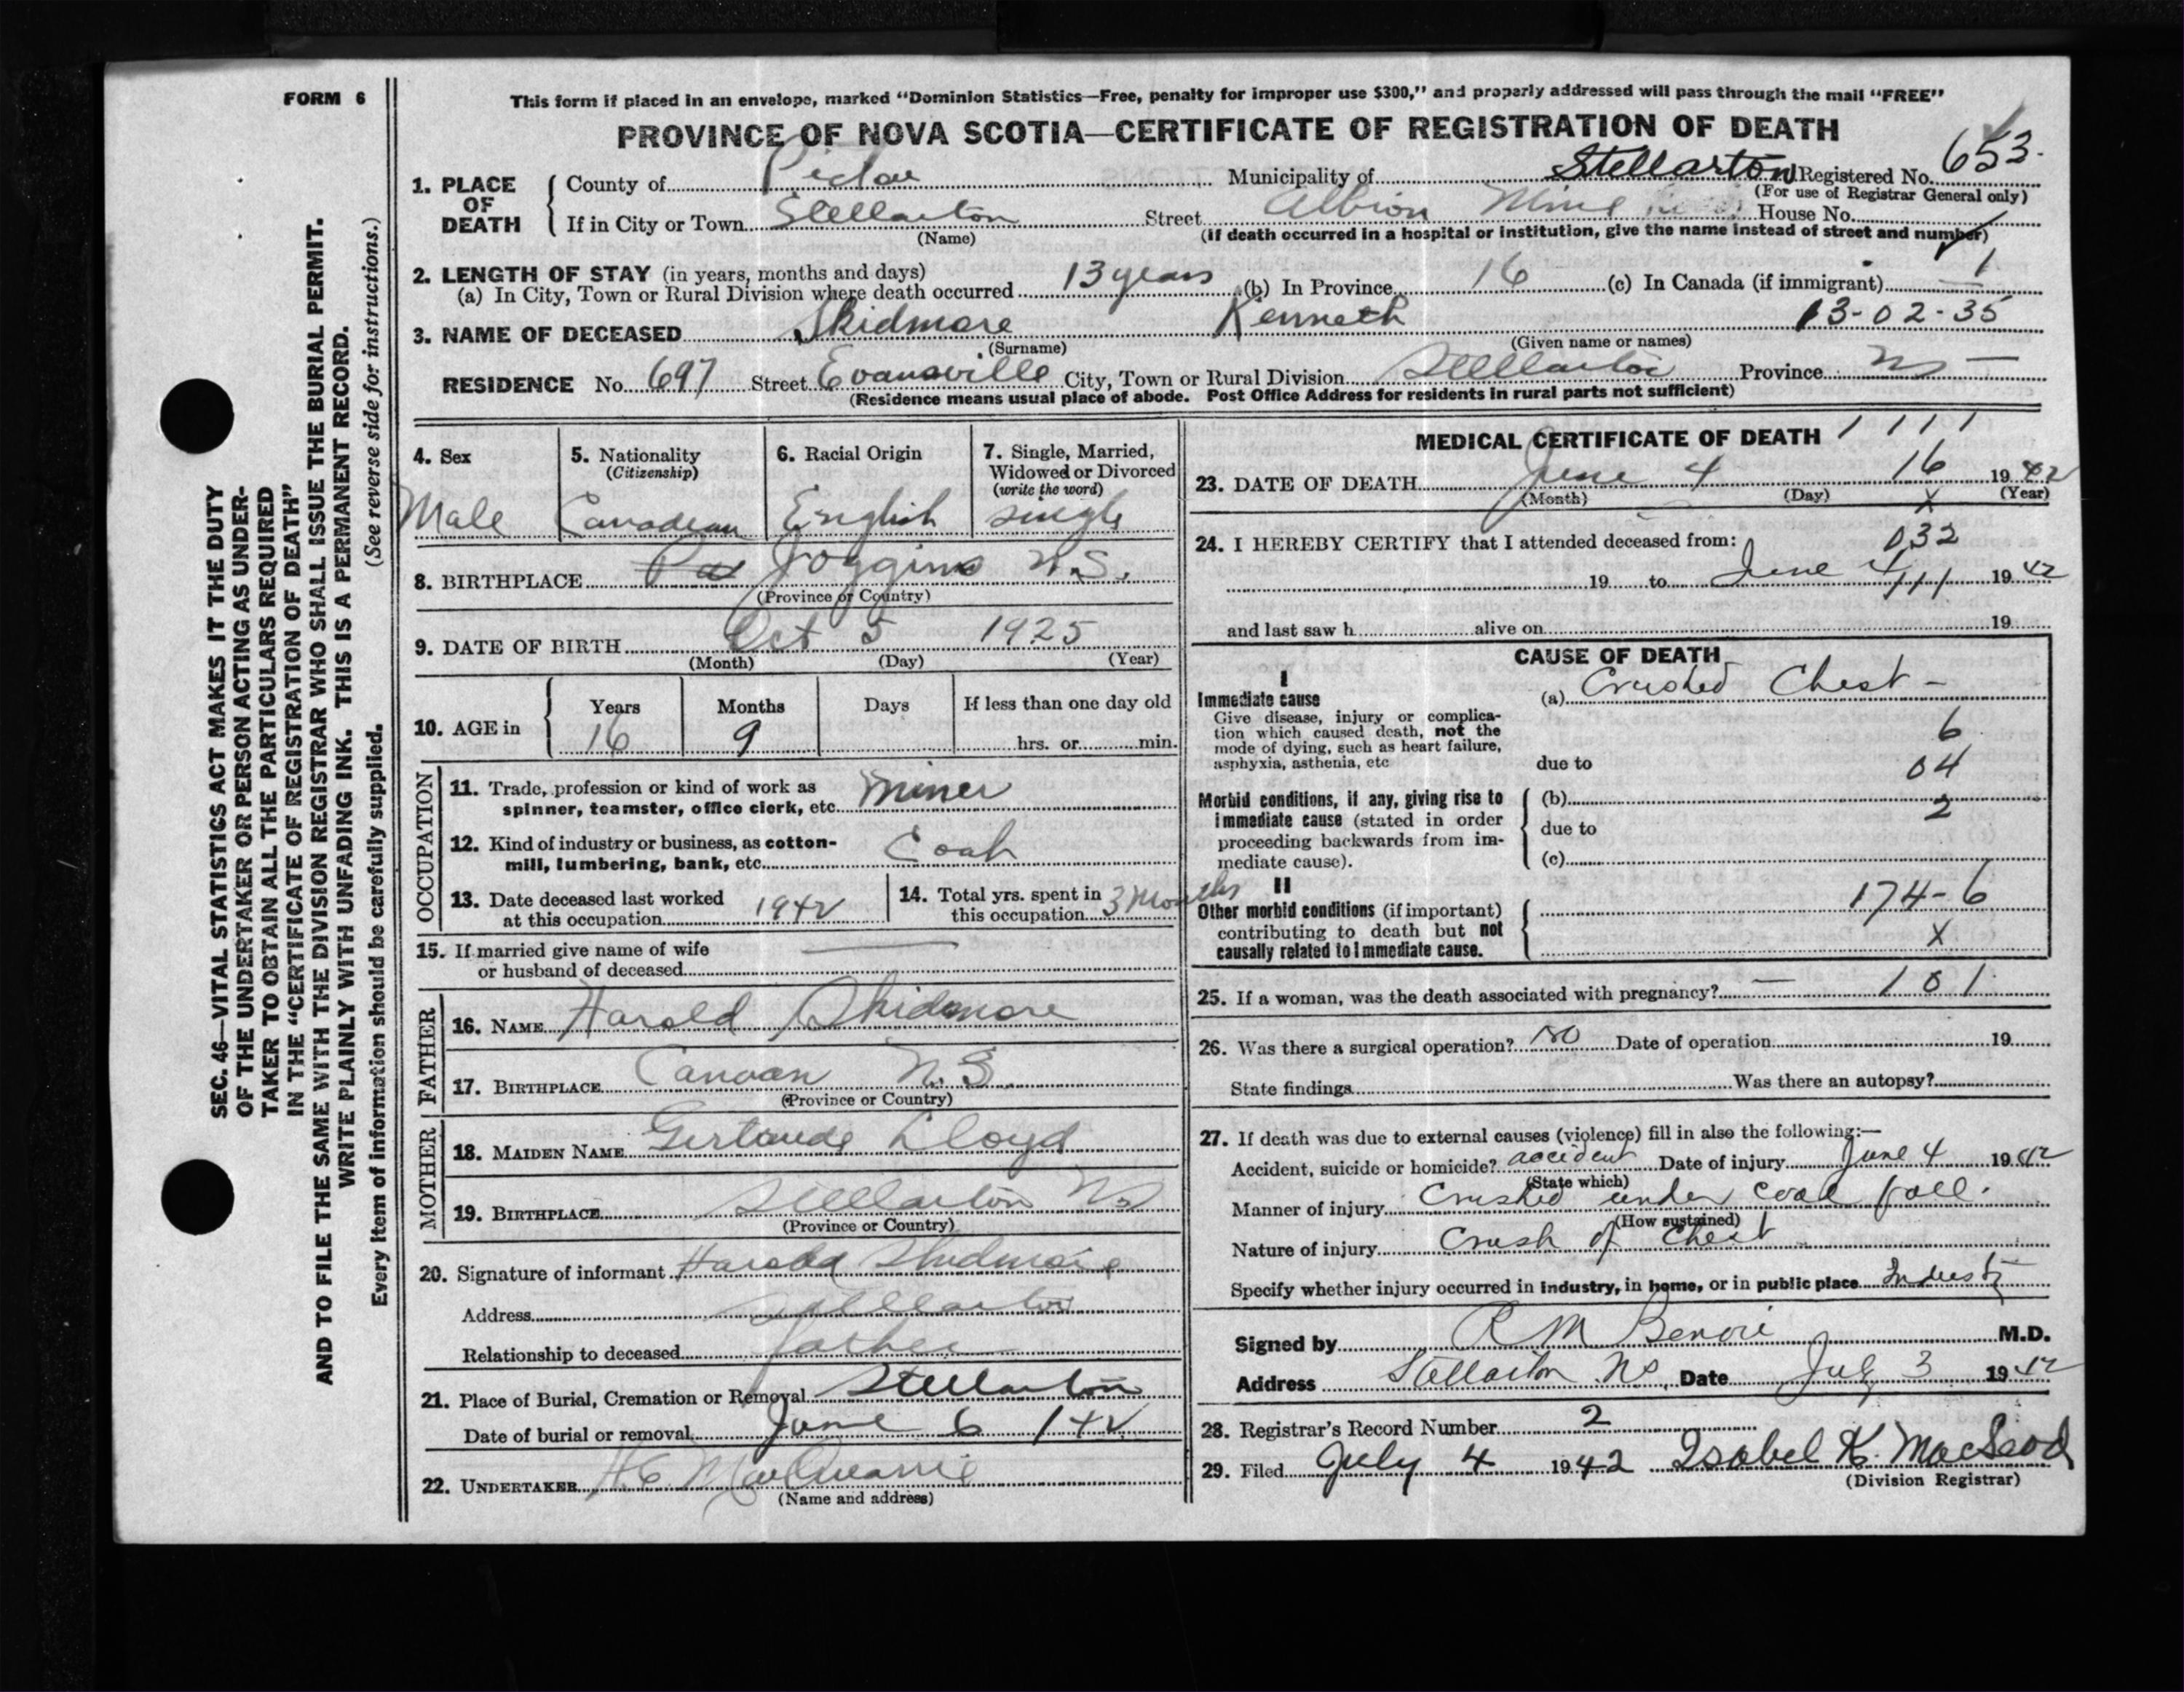 FORM 6
This form if placed in an envelope, marked "Dominion Statistics—Free, penalty for improper use $300," and properly addressed will pass through the mail "FREE"
PROVINCE OF NOVA SCOTIA—CERTIFICATE OF REGISTRATION OF DEATH
653.
1. PLACE OF DEATH { County of Pictou Municipality of Stellarton Registered No.
(For use of Registrar General only)
If in City or Town Stellarton Street Albion Mine House No.
(Name) (If death occurred in a hospital or institution, give the name instead of street and number)
2. LENGTH OF STAY (in years, months and days)
(a) In City, Town or Rural Division where death occurred 13 years (b) In Province 16 (c) In Canada (if immigrant)
3. NAME OF DECEASED Skidmore Kenneth 13-02-35
(Surname) (Given name or names)
RESIDENCE No. 697 Street Evansville City, Town or Rural Division Stellarton Province NS
(Residence means usual place of abode. Post Office Address for residents in rural parts not sufficient)
4. Sex 5. Nationality (Citizenship) 6. Racial Origin 7. Single, Married, Widowed or Divorced (write the word)
Male Canadian English single
8. BIRTHPLACE Joggins N.S.
(Province or Country)
9. DATE OF BIRTH Oct 5 1925
(Month) (Day) (Year)
10. AGE in { Years Months Days If less than one day old
16 9 hrs. or min.
OCCUPATION
11. Trade, profession or kind of work as
spinner, teamster, office clerk, etc. Miner
12. Kind of industry or business, as cotton-
mill, lumbering, bank, etc. Coal
13. Date deceased last worked
at this occupation 1942
14. Total yrs. spent in
this occupation 3 Months
15. If married give name of wife
or husband of deceased
FATHER
16. NAME Harold Skidmore
17. BIRTHPLACE Canaan N.S.
(Province or Country)
MOTHER
18. MAIDEN NAME Gertrude Lloyd
19. BIRTHPLACE Stellarton NS
(Province or Country)
20. Signature of informant Harold Skidmore
Address Stellarton
Relationship to deceased Father
21. Place of Burial, Cremation or Removal Stellarton
Date of burial or removal June 6 1942
22. UNDERTAKER
(Name and address)
MEDICAL CERTIFICATE OF DEATH 1 1 1 1
23. DATE OF DEATH June 4 16 1942
(Month) (Day) (Year)
X
24. I HEREBY CERTIFY that I attended deceased from: 032
19 to June 4 1942
111
and last saw h alive on 19
CAUSE OF DEATH
I
Immediate cause (a) Crushed Chest -
Give disease, injury or complica-
tion which caused death, not the
mode of dying, such as heart failure,
asphyxia, asthenia, etc
6
due to 04
Morbid conditions, if any, giving rise to
immediate cause (stated in order
proceeding backwards from im-
mediate cause).
(b) 2
due to
(c)
II
Other morbid conditions (if important)
contributing to death but not
causally related to immediate cause.
174-6
X
25. If a woman, was the death associated with pregnancy? — 101
26. Was there a surgical operation? No Date of operation 19
State findings Was there an autopsy?
27. If death was due to external causes (violence) fill in also the following:—
Accident, suicide or homicide? accident Date of injury June 4 1942
(State which)
Manner of injury Crushed under coal fall.
(How sustained)
Nature of injury Crush of Chest
Specify whether injury occurred in industry, in home, or in public place Industry
Signed by M.D.
Address Stellarton NS. Date July 3 1942
28. Registrar's Record Number 2
29. Filed July 4 1942 Isobel K. MacLeod
(Division Registrar)
SEC. 46—VITAL STATISTICS ACT MAKES IT THE DUTY
OF THE UNDERTAKER OR PERSON ACTING AS UNDER-
TAKER TO OBTAIN ALL THE PARTICULARS REQUIRED
IN THE "CERTIFICATE OF REGISTRATION OF DEATH"
AND TO FILE THE SAME WITH THE DIVISION REGISTRAR WHO SHALL ISSUE THE BURIAL PERMIT.
WRITE PLAINLY WITH UNFADING INK. THIS IS A PERMANENT RECORD.
Every item of information should be carefully supplied. (See reverse side for instructions.)